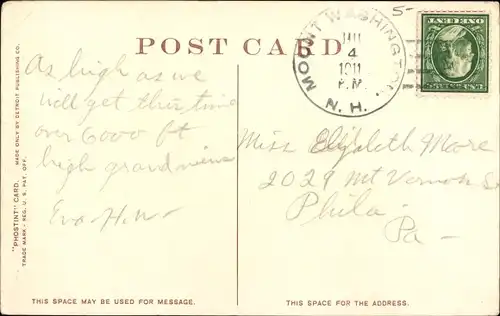 5-
POST CARD
MOUNT WASHINGTON
JUL
4
1911
P.M.
N. H.
As high as we
will get this time
over 6000 ft
high grand view
Eva H.W-
Miss Elizabeth More
2029 Mt Vernon St
Phila.
Pa-
"PHOSTINT" CARD. MADE ONLY BY DETROIT PUBLISHING CO.
TRADE MARK - REG. U. S. PAT. OFF.
THIS SPACE MAY BE USED FOR MESSAGE.
THIS SPACE IS FOR THE ADDRESS.
ONE CENT